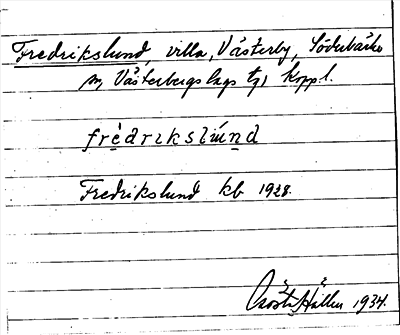 Fredrikslund, villa, Västerby, Söderbärke
sn, Västerbergslags tg, Koppl.
frèdrikslúnd
Fredrikslund kb 1928.
Hallen 1934.